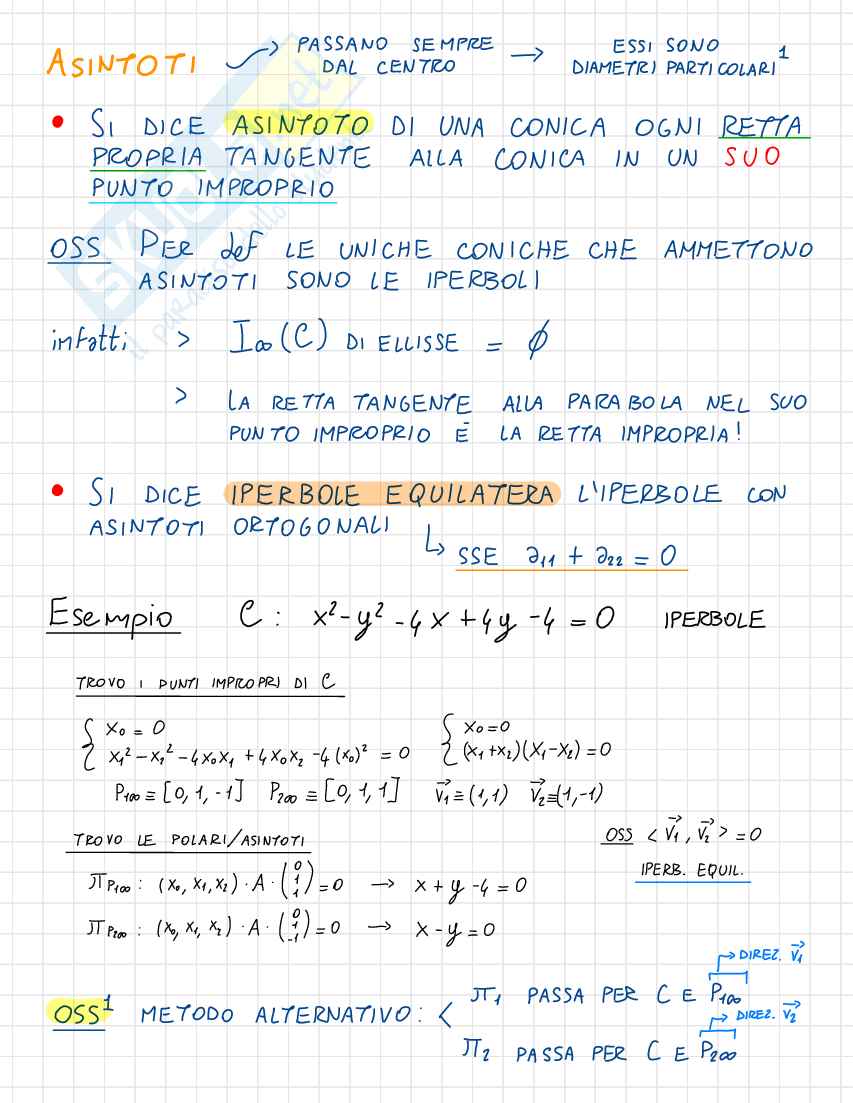 ASINTOTI → PASSANO SEMPRE DAL CENTRO → ESSI SONO DIAMETRI PARTICOLARI¹
• SI DICE ASINTOTO DI UNA CONICA OGNI RETTA
PROPRIA TANGENTE ALLA CONICA IN UN SUO
PUNTO IMPROPRIO
OSS PER def LE UNICHE CONICHE CHE AMMETTONO
ASINTOTI SONO LE IPERBOLI
infatti > I∞(C) DI ELLISSE = ∅
> LA RETTA TANGENTE ALLA PARABOLA NEL SUO
PUNTO IMPROPRIO È LA RETTA IMPROPRIA!
• SI DICE IPERBOLE EQUILATERA L'IPERBOLE CON
ASINTOTI ORTOGONALI
↳ SSE a₁₁ + a₂₂ = 0
Esempio C: x² - y² - 4x + 4y - 4 = 0 IPERBOLE
TROVO I PUNTI IMPROPRI DI C
{ x₀ = 0 { x₀ = 0
x₁² - x₂² - 4x₀x₁ + 4x₀x₂ - 4(x₀)² = 0 (x₁ + x₂)(x₁ - x₂) = 0
P₁∞ ≡ [0, 1, -1] P₂∞ ≡ [0, 1, 1] v₁ ≡ (1, 1) v₂ ≡ (1, -1)
TROVO LE POLARI/ASINTOTI OSS < v₁, v₂ > = 0
IPERB. EQUIL.
π P₁∞ : (x₀, x₁, x₂) · A · (0 1 1) = 0 → x + y - 4 = 0
π P₂∞ : (x₀, x₁, x₂) · A · (0 1 -1) = 0 → x - y = 0
→ DIREZ. v₁
OSS¹ METODO ALTERNATIVO: < π₁ PASSA PER C E P₁∞
→ DIREZ. v₂
π₂ PASSA PER C E P₂∞
il paradiso dello